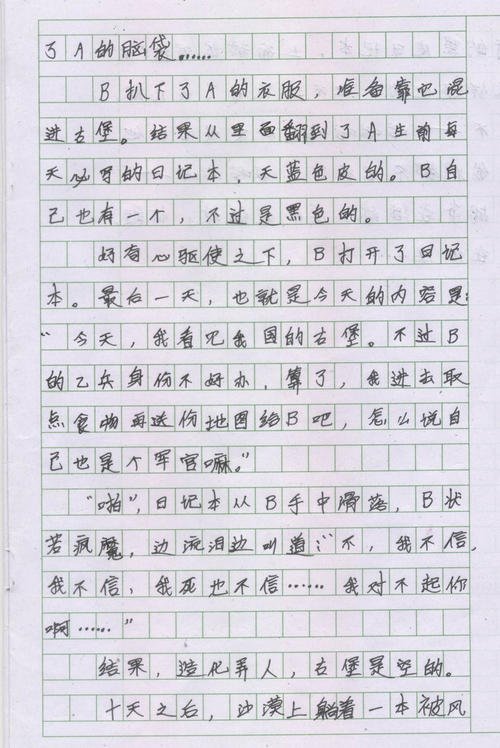 了A的脑袋……
B扒下了A的衣服，准备靠它混
进古堡。结果从里面翻到了A生前每
天必写的日记本，天蓝色皮的。B自
己也有一个，不过是黑色的。
好奇心驱使之下，B打开了日记
本。最后一天，也就是今天的内容是：
“今天，我看见我国的古堡。不过B
的乙兵身份不好办，算了，我进去取
点食物再送份地图给B吧，怎么说自
己也是个军官嘛。”
“啪”，日记本从B手中滑落，B状
若疯魔，边流泪边叫道：“不，我不信，
我不信，我死也不信……我对不起你
啊……”
结果，造化弄人，古堡是空的。
十天之后，沙漠上躺着一本被风